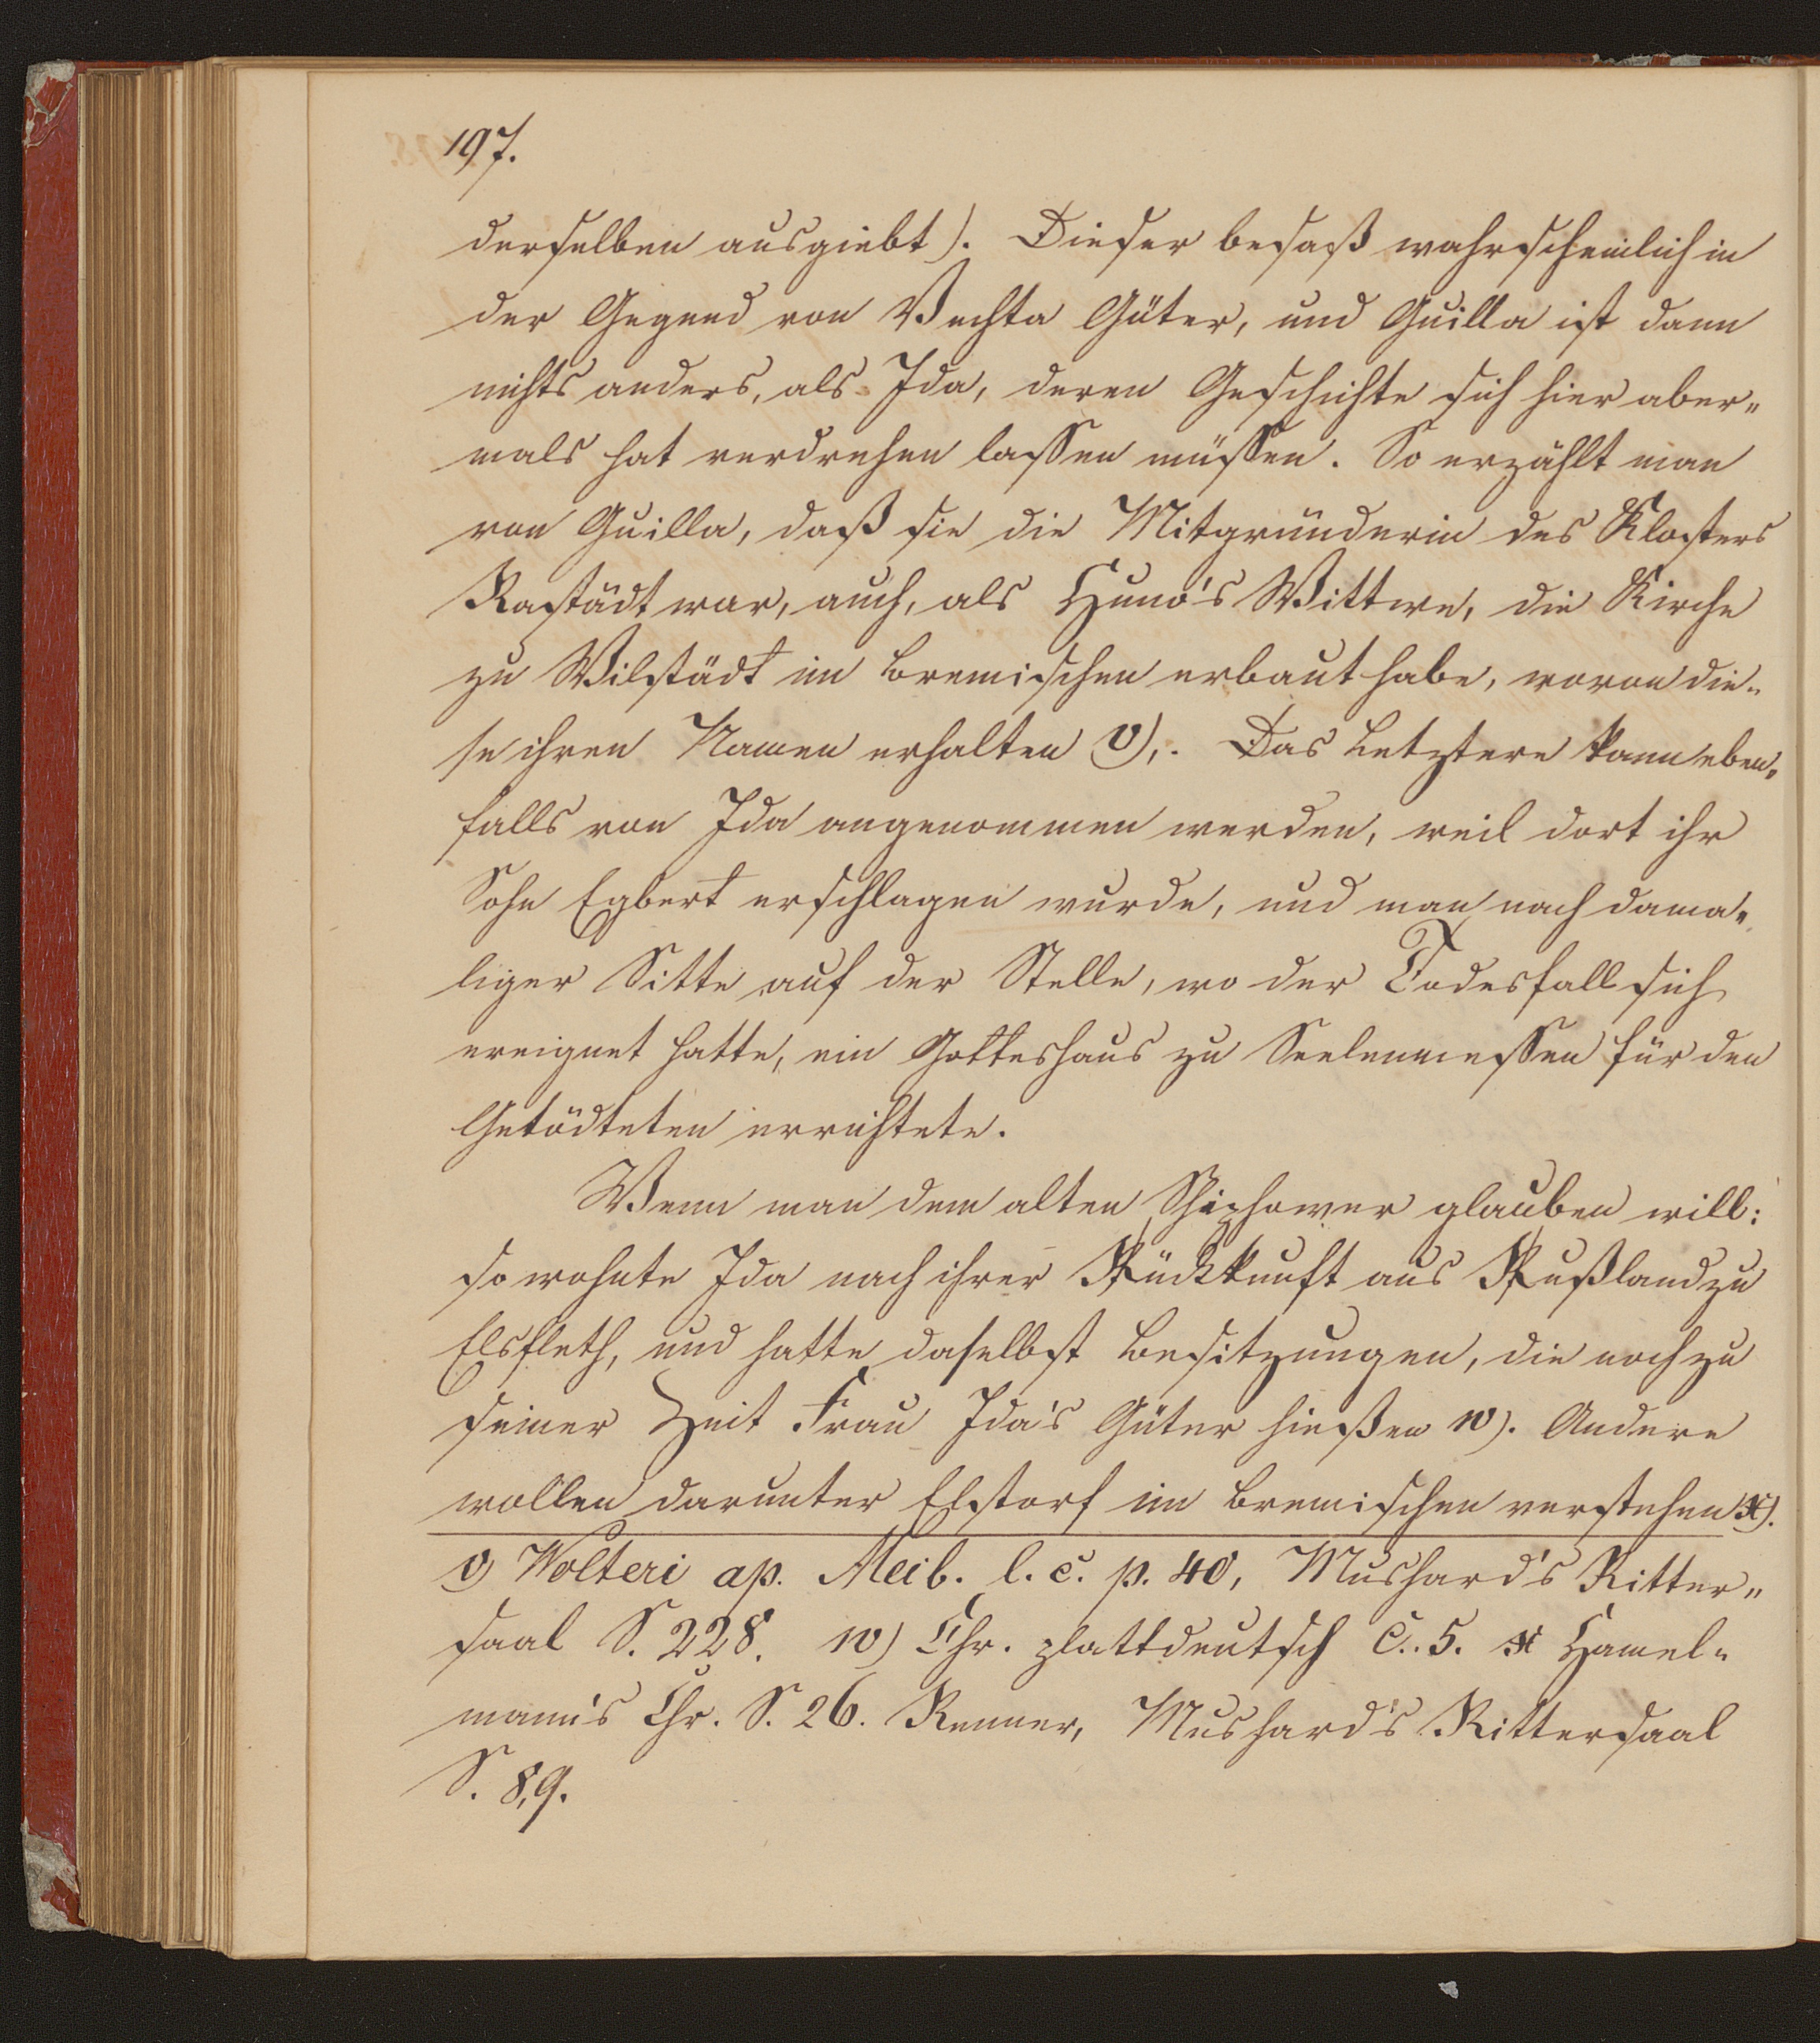 197.
derselben ausgiebt). Dieser besaß wahrscheinlich in
der Gegend von Vechta Güter, und Guilla ist dann
nichts anders, als Ida, deren Geschichte sich hier aber„
mals hat verdrehen lassen müssen. So erzählt man
von Guilla, daß sie die Mitgründerin des Klosters
Rastädt war, auch, als Huno's Wittwe, die Kirche
zu Wilstädt im Bremischen erbaut habe, wovon die„
se ihren Namen erhalten v),. Das Letztere kann eben„
falls von Ida angenommen werden, weil dort ihr
Sohn Egbert erschlagen wurde, und man nach dama„
liger Sitte auf der Stelle, wo der Todesfall sich
ereignet hatte, ein Gotteshaus zu Seelenmessen für den
Getödteten errichtete.
Wenn man dem alten Schiphower glauben will:
so wohnte Ida nach ihrer Rückkunft aus Rußland zu
Elsfleth, und hatte daselbst Besitzungen, die noch zu
seiner Zeit Frau Ida's Güter hießen w). Andere
wollen darunter Elstorf im Bremischen verstehen x).
v) Wolteri ap. Meib. l. c. p. 40, Mushard's Ritter„
saal S. 228. w) Chr. plattdeutsch C. 5. x Hamel„
mann's Chr. S. 26. Renner, Mushard's Rittersaal
S. 8,9.